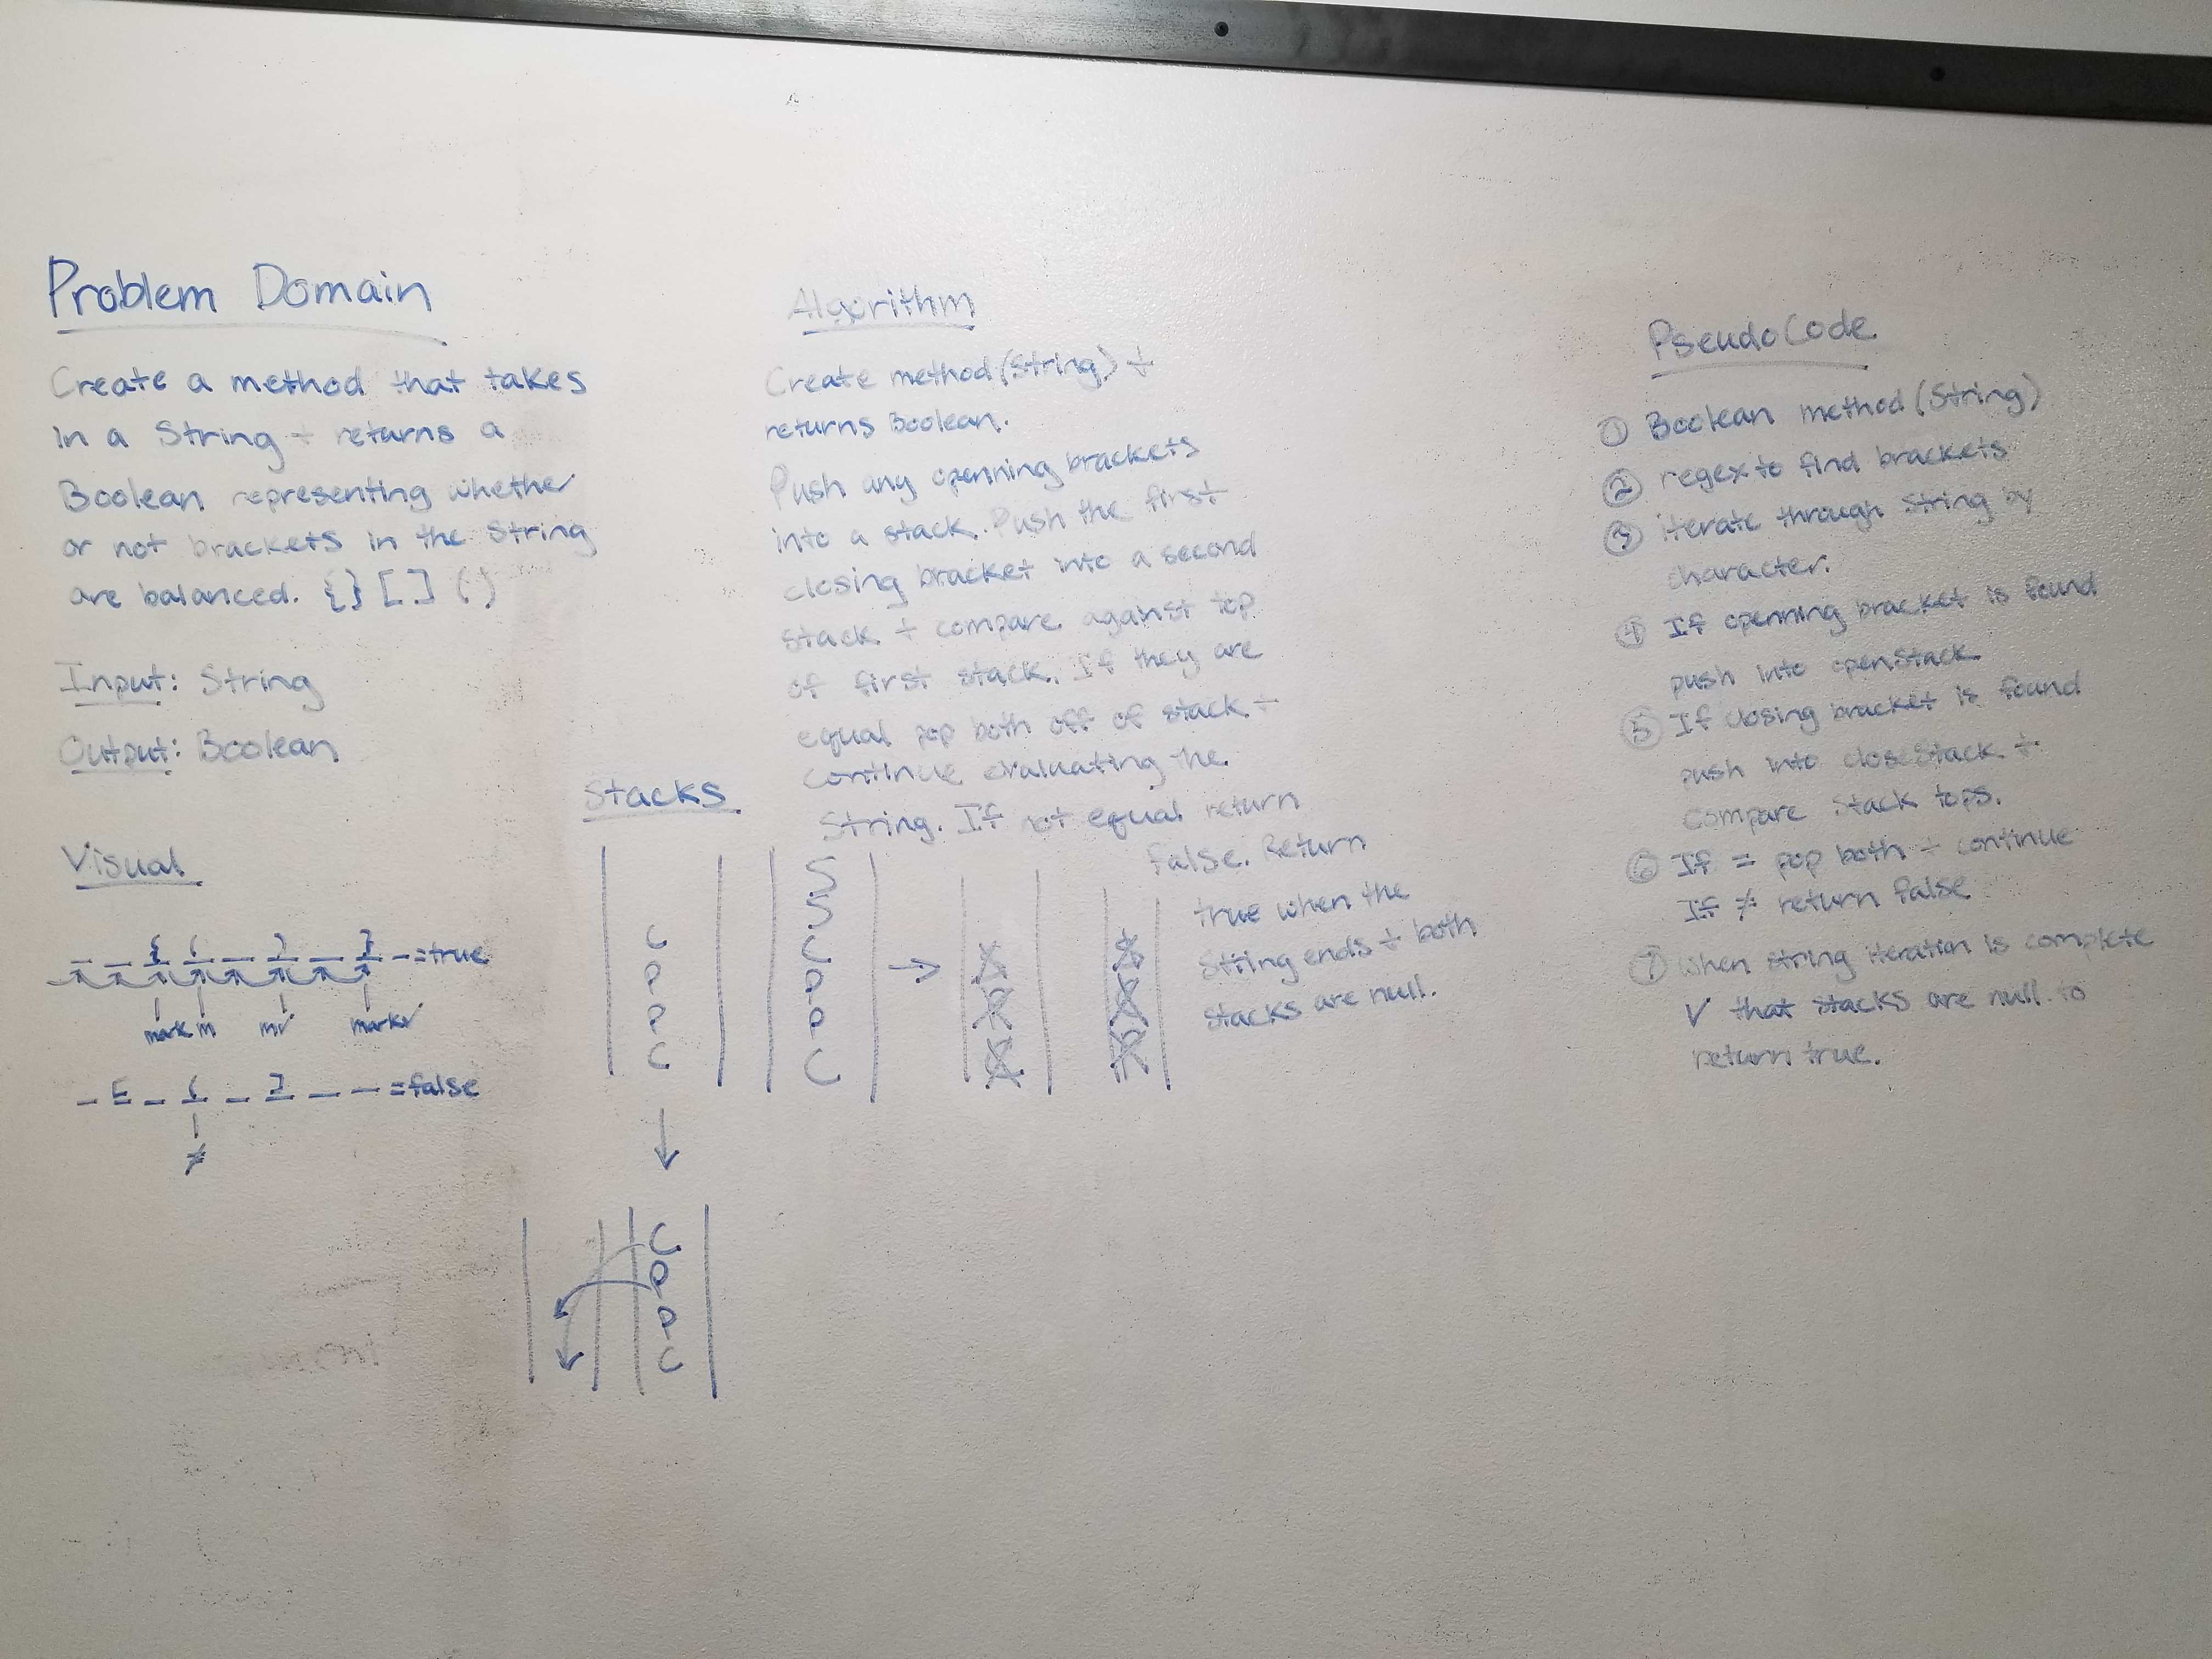 Problem Domain
Create a method that takes
in a String + returns a
Boolean representing whether
or not brackets in the String
are balanced. {} [] ()
Input: String
Output: Boolean
Visual
_ _ { ( _ ) _ } _ = true
mark m m✓ mark✓
_ [ _ ( _ ] _ _ = false
≠
Stacks
C
P
P
C
S
S
C
P
P
C
→
C
P
P
C
Algorithm
Create method (String) +
returns Boolean.
Push any openning brackets
into a stack. Push the first
closing bracket into a second
stack + compare against top
of first stack. If they are
equal pop both off of stack +
continue evaluating the
String. If not equal return
false. Return
true when the
String ends + both
stacks are null.
PseudoCode
① Boolean method (String)
② regex to find brackets
③ iterate through String by
character.
④ If openning bracket is found
push into openStack
⑤ If closing bracket is found
push into closeStack +
compare stack tops.
⑥ If = pop both + continue
If ≠ return false
⑦ When string iteration is complete
✓ that stacks are null to
return true.